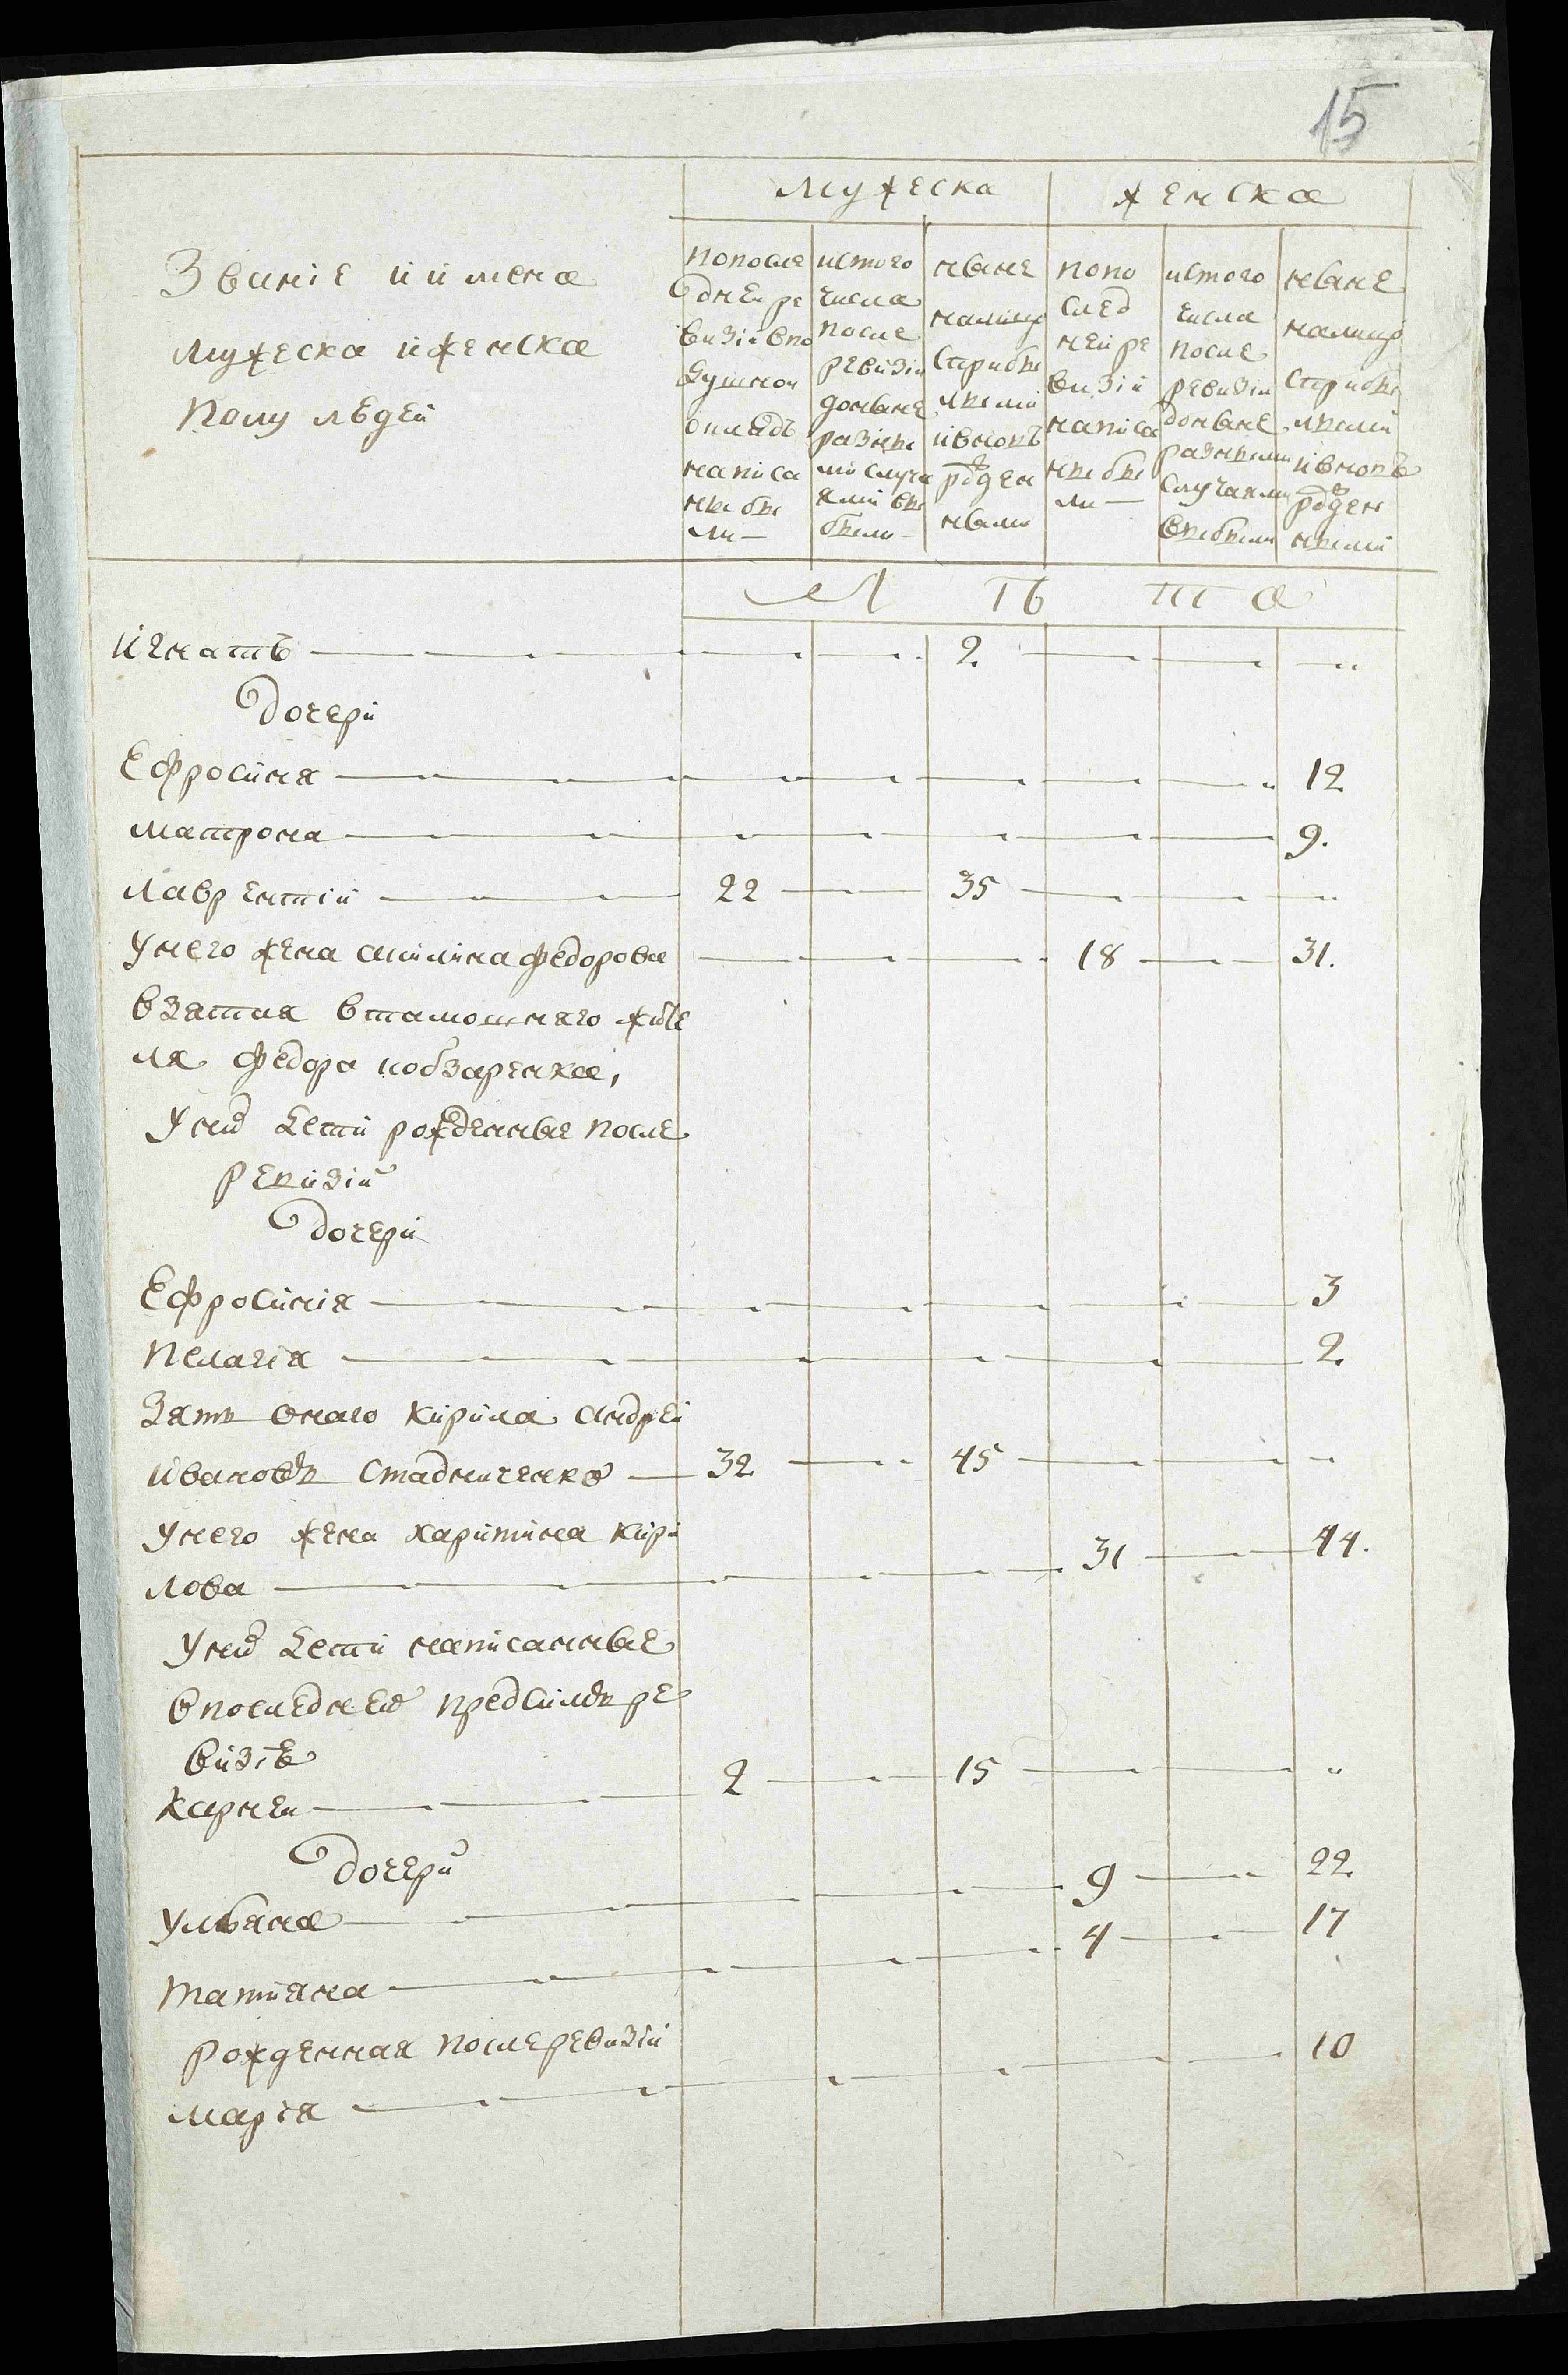 15
Мужеска Женска
Званіе и имена
мужеска и женска
полу людей
попосле
дней ре
визіи впо
душной
окладъ
написа
ны бы
ли —
истого
числа
после
ревизіи
доныне
разны
ми случа
ями вы
были —
ныне
налицо
Сприбы
лыми
ивновъ
рожден
ными
попо
след
ней ре
визіи
написа
ны бы
ли —
истого
числа
после
ревизіи
доныне
разными
случаями
выбыли
ныне
налицо
Сприбы
лыми
ивновъ
рожден
ными
Л Ѣ т а
игнатъ — 2. — „
дочери
Ефросиня — 12
матрона — 9.
лаврентій — 22 — 35 — „
унего жена акилина федорова — 18 — 31.
взятая втамошняго жите
ля федора кобзаренка,
уних дети рожденные после
ревизіи
дочери
Ефросинія — 3
пелагія — 2.
Зять онаго кирила андрей
ивановъ Стадниченко — 32 — 45 — „
унего жена харитина кири
лова — 31 — 44.
уних дети написанные
впоследней предсимъ ре
визіе
карней — 2 — 15 — „
дочери
ульяна — 9 — 22
татіяна — 4 — 17
рожденная послеревизіи
марія — 10